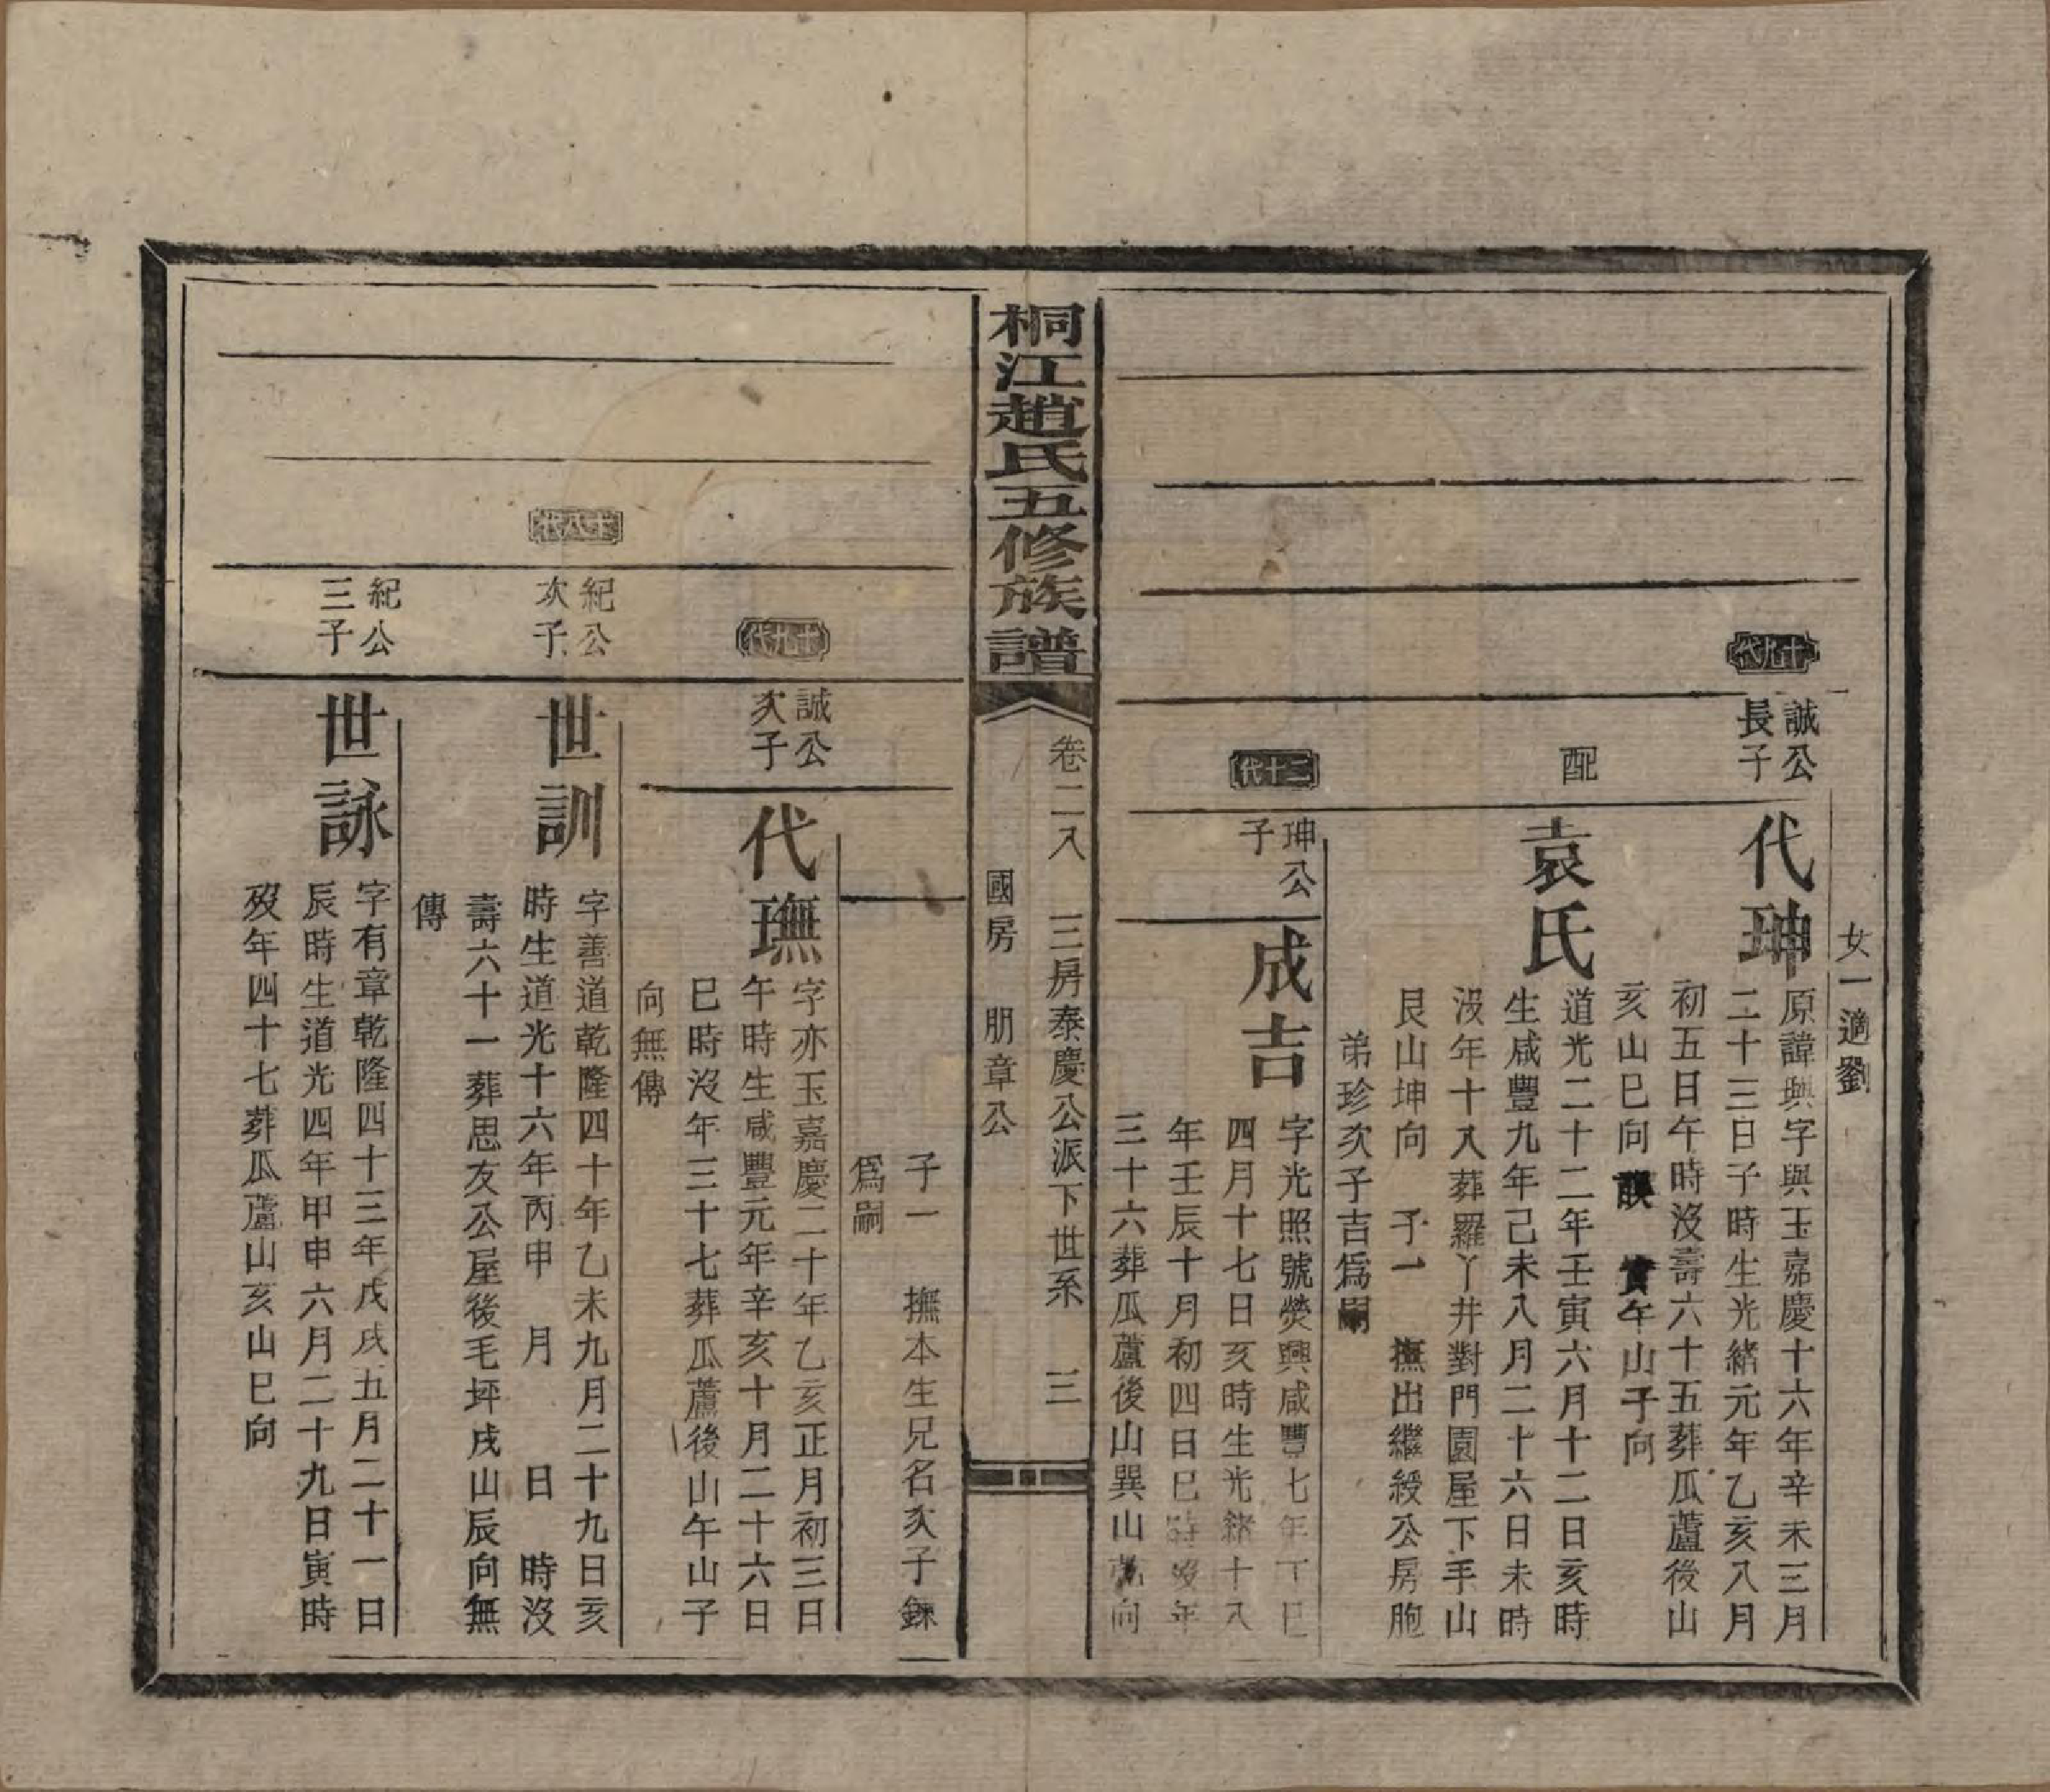 女一適劉
十九代
誠公
長子
代珅
原諱興字興玉嘉慶十六年辛未三月
二十三日子時生光緒元年乙亥八月
初五日午時沒壽六十五葬瓜蘆後山
亥山巳向 誤 實午山子向
配
袁氏
道光二十二年壬寅六月十二日亥時
生咸豐九年己未八月二十六日未時
沒年十八葬羅丫井對門園屋下手山
艮山坤向 子一 撫出繼綬公房胞
弟珍次子吉爲嗣
二十代
珅公
子
成吉
字光照號熒興咸豐七年丁巳
四月十七日亥時生光緒十八
年壬辰十月初四日巳時沒年
三十六葬瓜蘆後山巽山 向
桐江趙氏五修族譜
卷二八 三房泰慶公派下世系 三
國房 朋章公
子一 撫本生兄名次子錸
爲嗣
十九代
誠公
次子
代璑
字亦玉嘉慶二十年乙亥正月初三日
午時生咸豐元年辛亥十月二十六日
巳時沒年三十七葬瓜蘆後山午山子
向無傳
十八代
紀公
次子
世訓
字善道乾隆四十年乙未九月二十九日亥
時生道光十六年丙申 月 日 時沒
壽六十一葬思友公屋後毛坪戌山辰向無
傳
紀公
三子
世詠
字有章乾隆四十三年戊戌五月二十一日
辰時生道光四年甲申六月二十九日寅時
歿年四十七葬瓜蘆山亥山巳向